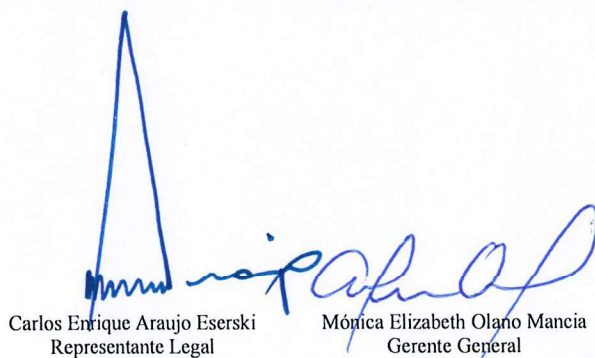 Carlos Enrique Araujo Eserski
Representante Legal
Mónica Elizabeth Olano Mancia
Gerente General